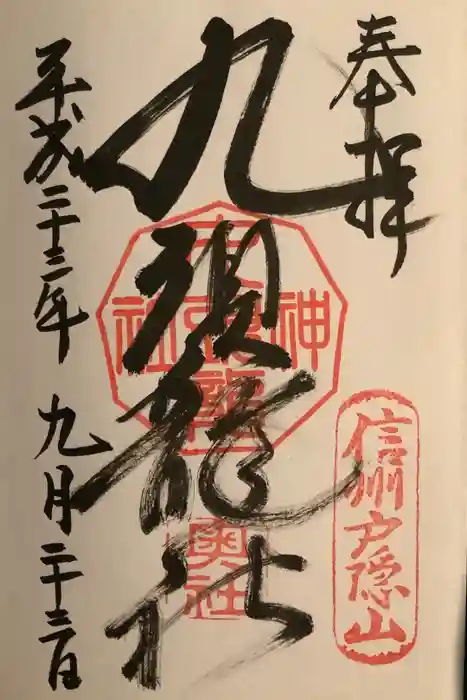 奉拝
信州戸隠山
九頭龍社
神社
奥社
平成二十三年九月二十三日